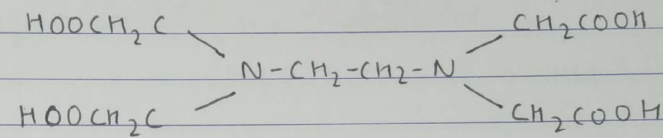 HOOCH₂C CH₂COOH
N-CH₂-CH₂-N
HOOCH₂C CH₂COOH